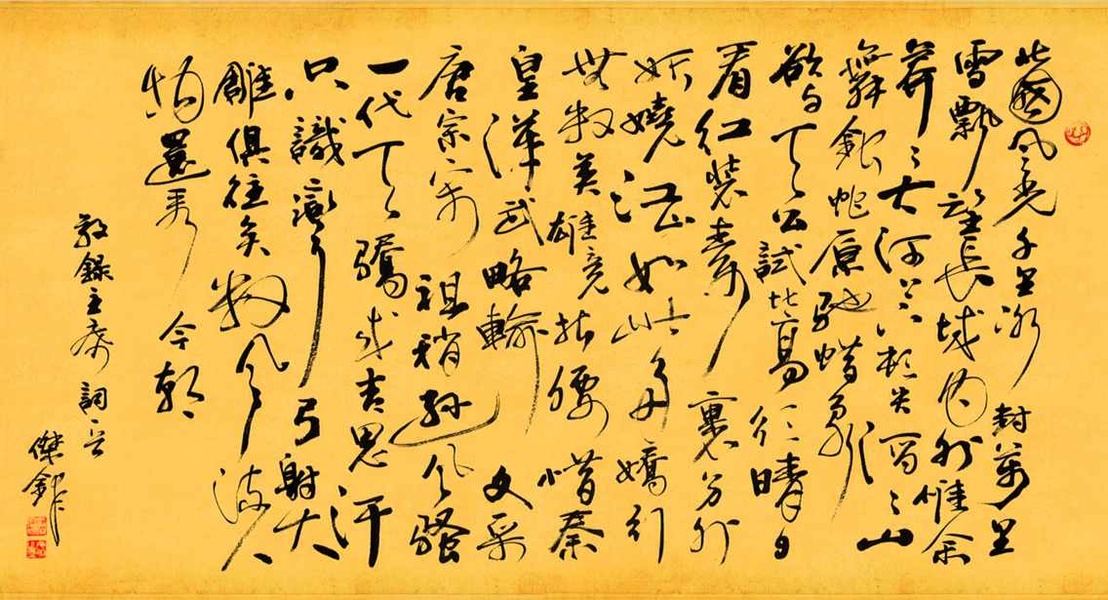 北國風光千里冰封萬里
雪飄望長城内外惟余
莽〻大河上下頓失滔〻山
舞銀蛇原馳蜡象
欲与天公試比高須晴日
看紅裝素裹分外
妖嬈江山如此多嬌引
無数英雄竞折腰惜秦
皇漢武略輸文采
唐宗宋祖稍遜風騷
一代天驕成吉思汗
只識彎弓射大
雕俱往矣数風流人
物還看今朝
敬錄主席詞
傑